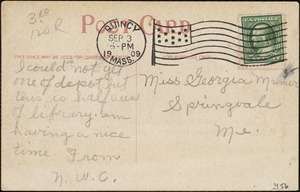 3 00
120 R
POST CARD
QUINCY
SEP 3
6-PM
1909
MASS.
I could not get
one of depot but
this is half view
of library. am
having a nice
time. From
N. W. C.
Miss Georgia
Springvale
Me.